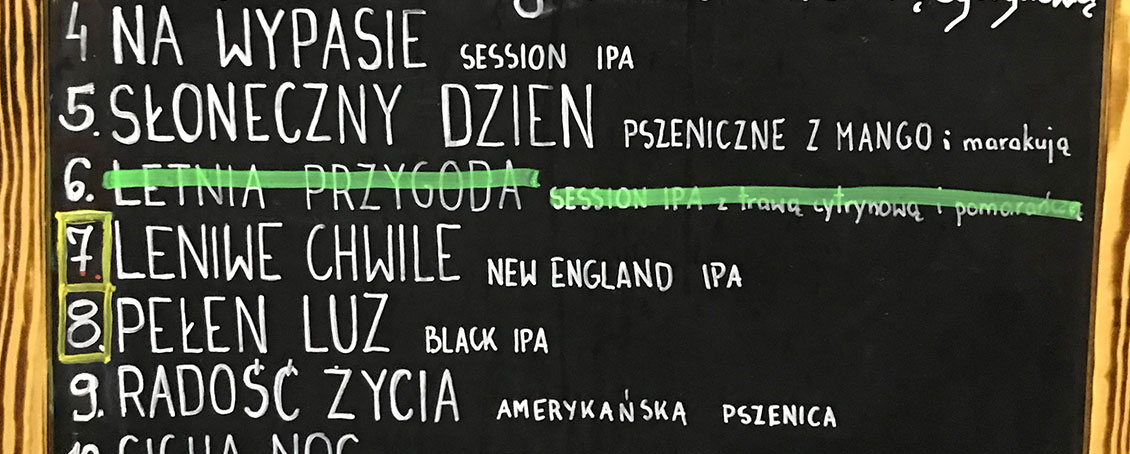 4 NA WYPASIE SESSION IPA
5. SŁONECZNY DZIEŃ PSZENICZNE Z MANGO i marakują
6. LETNIA PRZYGODA SESSION IPA z trawą cytrynową i pomarańczą
7. LENIWE CHWILE NEW ENGLAND IPA
8. PEŁEN LUZ BLACK IPA
9. RADOŚĆ ŻYCIA AMERYKAŃSKA PSZENICA
10 CICHA NOC